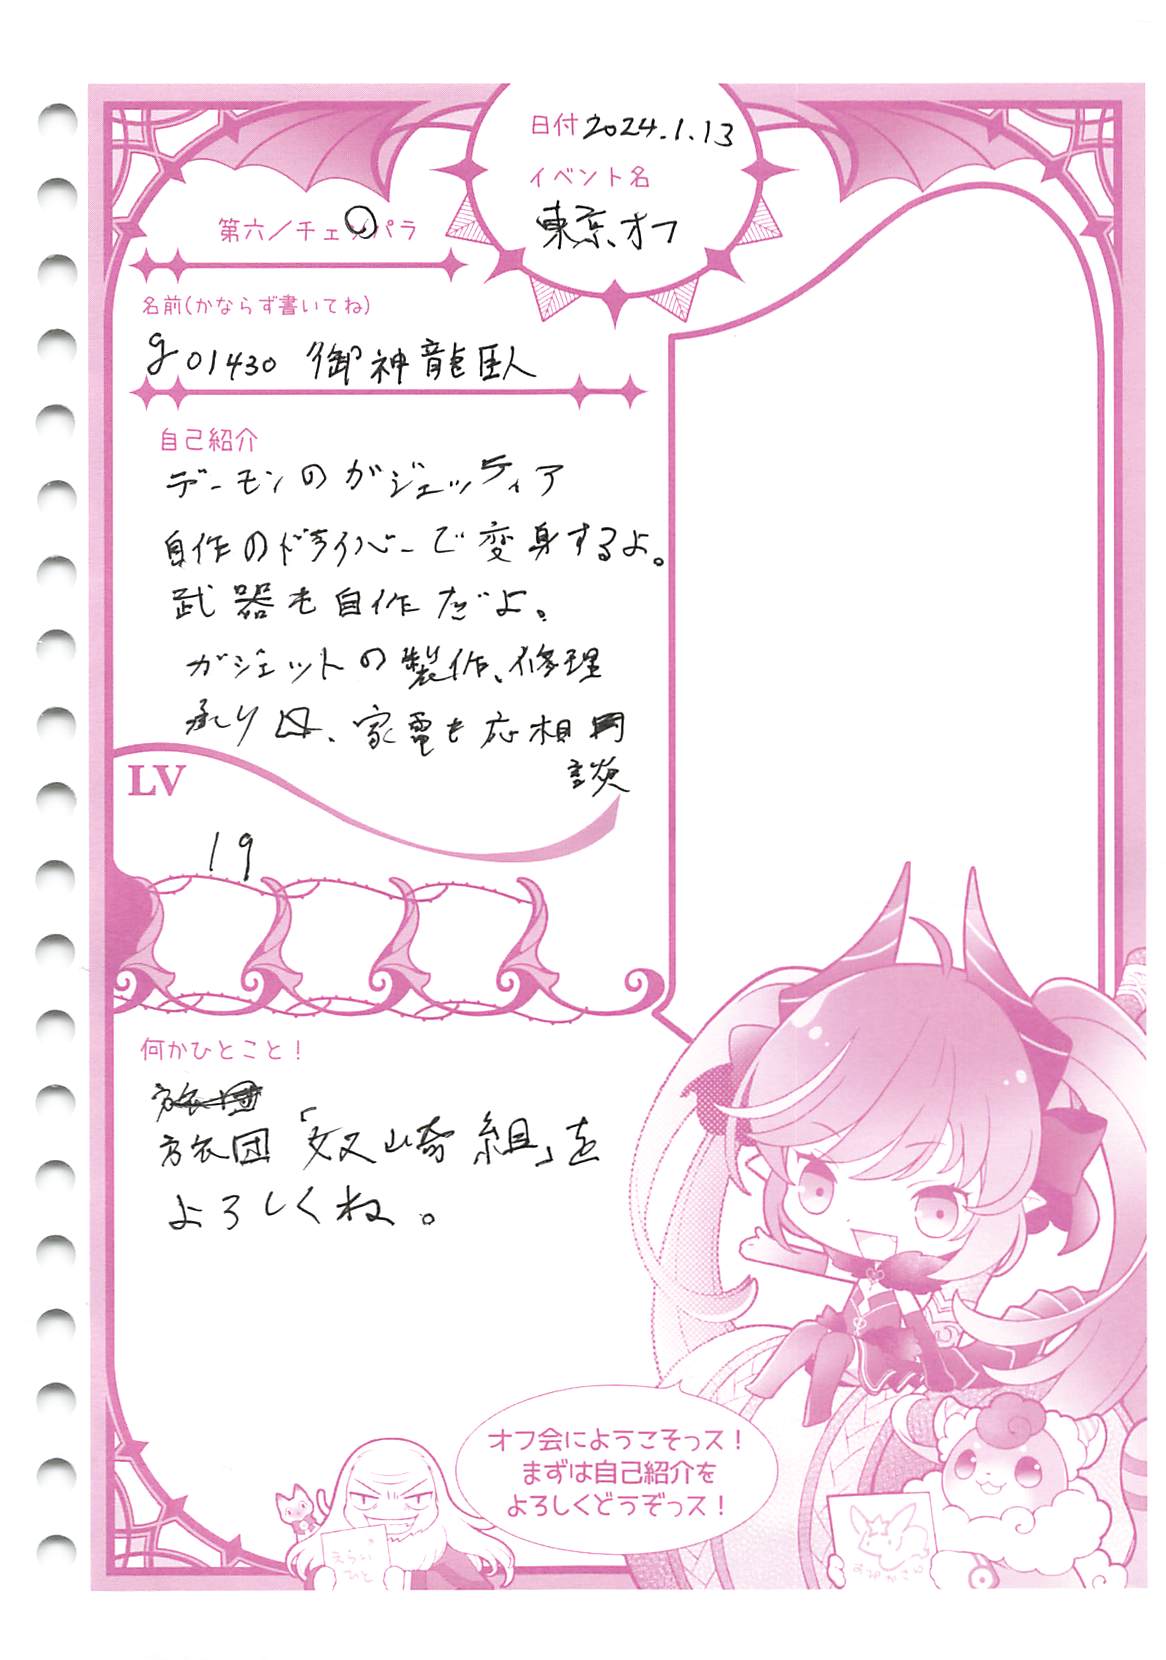 日付 2024.1.13
イベント名
東京オフ
第六/チェンパラ
名前(かならず書いてね)
g01430 御神龍臥
自己紹介
デーモンのガジェッティア
自作のドライバーで変身するよ。
武器も自作だよ。
ガジェットの製作、修理
承り〼、家電も応相
談
LV
19
何かひとこと!
旅団
旅団「奴崎組」を
よろしくね。
オフ会にようこそっス!
まずは自己紹介を
よろしくどうぞっス!
えらい
ひと